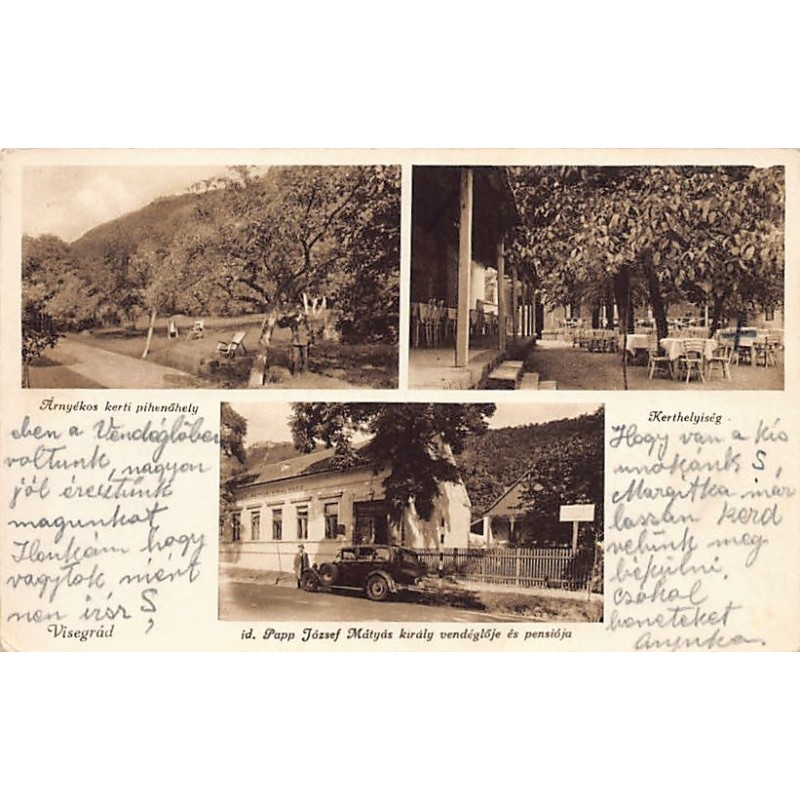 Árnyékos kerti pihenőhely
Kerthelyiség.
eben a Vendéglőben
voltunk, nagyon
jól éreztünk
magunkat
Ilonkám hogy
vagytok miért
nem írsz S,
Visegrád
id. Papp József Mátyás király vendéglője és pensiója
Hogy van a kis
unokánk S,
Margitka már
lassan kezd
velünk meg
békülni.
csókol
beneteket
Anyuka.